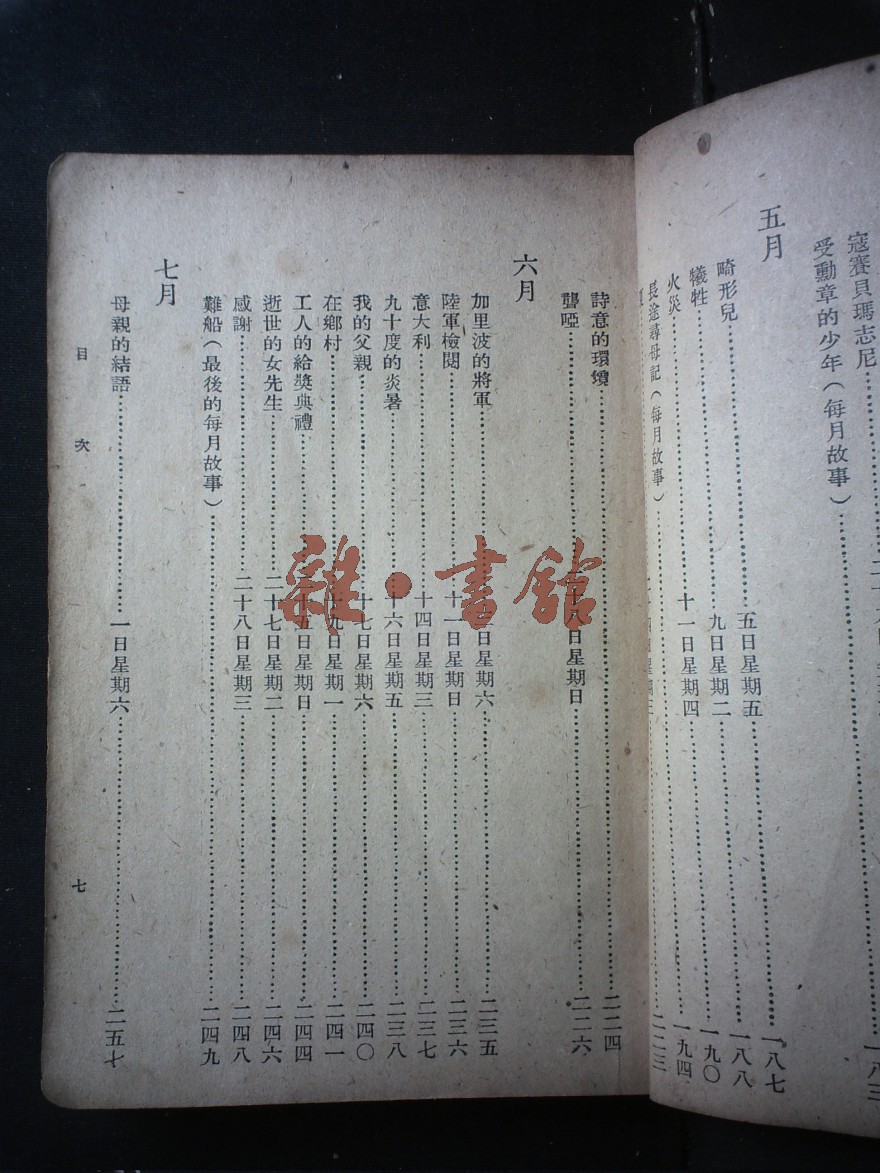 寇賽貝瑪志尼
受勳章的少年（每月故事）……一八三
五月
畸形兒……五日星期五……一八七
犧牲……九日星期二……一八八
火災……十一日星期四……一九〇
長途尋母記（每月故事）……一九四
二十四日星期三……二二三
詩意的環境……二二四
聾啞……十八日星期日……二二六
六月
加里波的將軍……日星期六……二三五
陸軍檢閱……十一日星期日……二三六
意大利……十四日星期三……二三七
九十度的炎暑……十六日星期五……二三八
我的父親……十七日星期六……二四〇
在鄉村……十九日星期一……二四一
工人的給獎典禮……十五日星期日……二四四
逝世的女先生……二十七日星期二……二四六
感謝……二十八日星期三……二四八
難船（最後的每月故事）……二四九
七月
母親的結語……一日星期六……二五七
目次 七
雜·書館